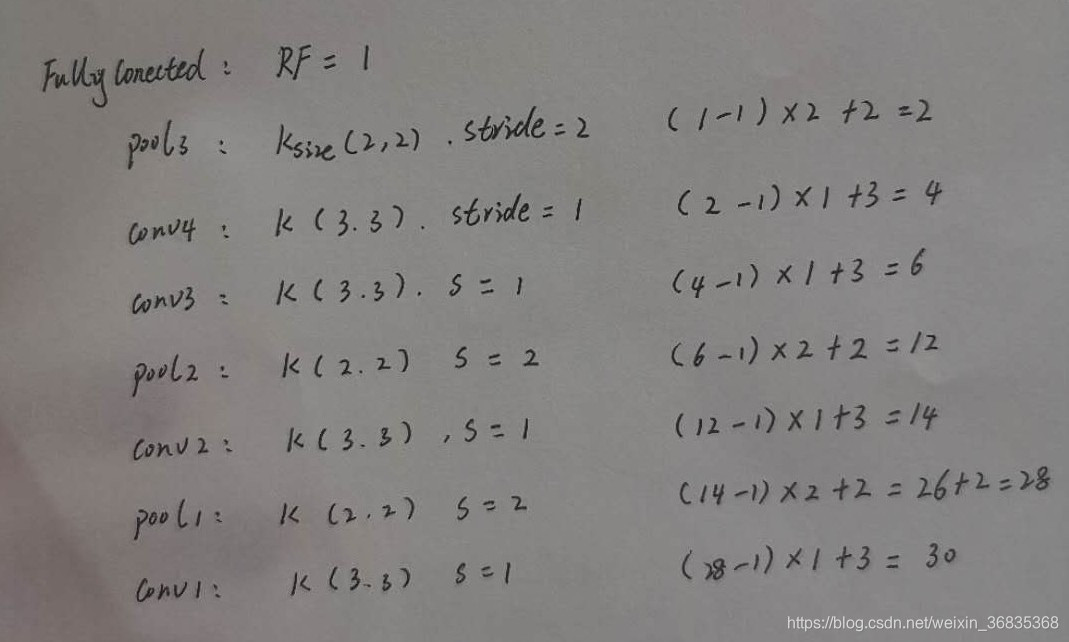 Fully Conected : RF = 1
pool3 : ksize (2,2) . stride = 2 (1-1) × 2 + 2 = 2
conv4 : k (3.3) . stride = 1 (2-1) × 1 + 3 = 4
conv3 : k (3.3) . s = 1 (4-1) × 1 + 3 = 6
pool2 : k (2.2) s = 2 (6-1) × 2 + 2 = 12
conv2 : k (3.3) , s = 1 (12-1) × 1 + 3 = 14
pool1 : k (2.2) s = 2 (14-1) × 2 + 2 = 26+2 = 28
conv1 : k (3.3) s = 1 (28-1) × 1 + 3 = 30
https://blog.csdn.net/weixin_36835368